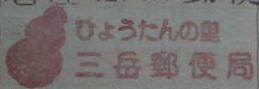 ひょうたんの里
三岳郵便局